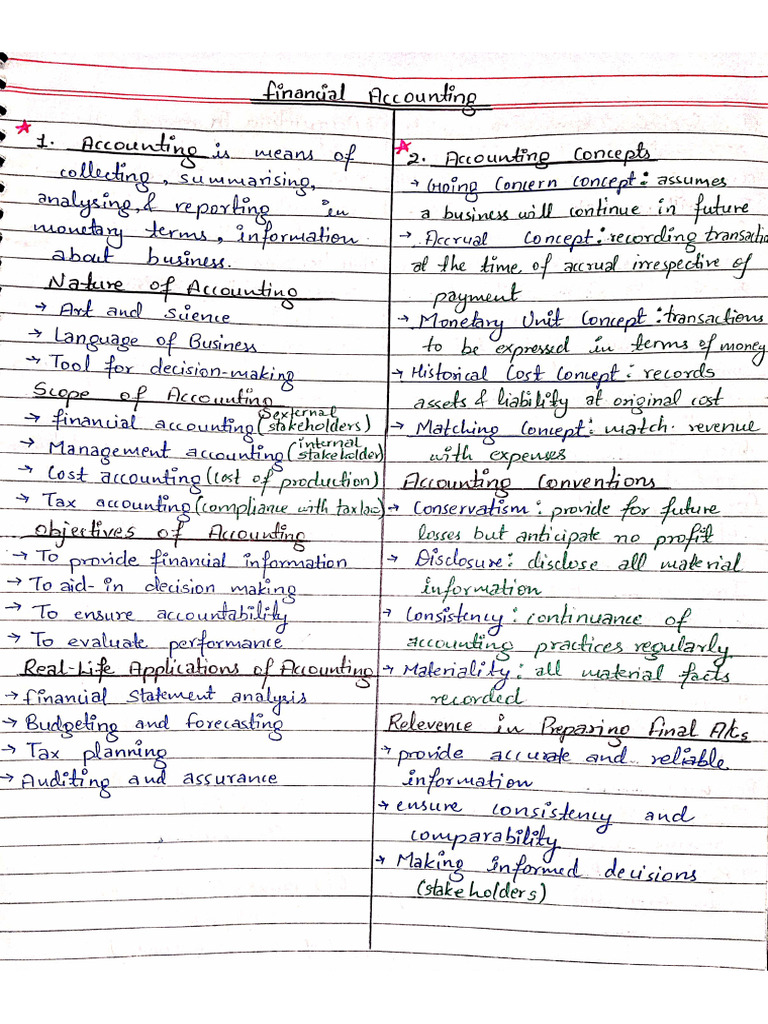 Financial Accounting
1. Accounting is means of
collecting, summarising,
analysing, & reporting in
monetary terms, information
about business.
Nature of Accounting
→ Art and Science
→ Language of Business
→ Tool for decision-making
Scope of Accounting
→ financial accounting (external stakeholders)
→ Management accounting (internal stakeholder)
→ Cost accounting (cost of production)
→ Tax accounting (compliance with tax law)
Objectives of Accounting
→ To provide financial information
→ To aid-in decision making
→ To ensure accountability
→ To evaluate performance
Real-Life Applications of Accounting
→ financial statement analysis
→ Budgeting and forecasting
→ Tax planning
→ Auditing and assurance
2. Accounting Concepts
→ Going Concern concept: assumes
a business will continue in future
→ Accrual Concept: recording transactio
at the time of accrual irrespective of
payment
→ Monetary Unit Concept: transactions
to be expressed in terms of money
→ Historical Cost Concept: records
assets & liability at original cost
→ Matching Concept: match revenue
with expenses
Accounting Conventions
→ Conservatism: provide for future
losses but anticipate no profit
→ Disclosure: disclose all material
information
→ Consistency: continuance of
accounting practices regularly
→ Materiality: all material facts
recorded
Relevence in Preparing Final A/cs
→ provide accurate and reliable
information
→ ensure consistency and
comparability
→ Making informed decisions
(stakeholders)